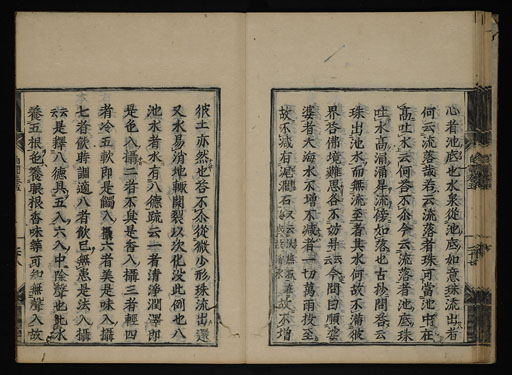 心者池底也水泉從池底如意珠流出者
何云流落哉若云流落者珠可當池中在
高吐水云何答不尒今云流落者池底珠
吐水高涌涌岸流傍如落也古抄問答云
珠出池水而無流至者其水何故不滿彼
界答佛境難思答不妨第云今問曰順婆
婆者大海水不增不減者一切萬雨投至
故不減有沃潤石又云沃焦石在故不增
彼土亦然也答不尒從微少形珠流出還
又水易消地輙開裂以次化沒此例也八
池水者水有八德疏云一者清淨潤澤即
是色入攝二者不臭是香入攝三者輕四
者冷五軟即是觸入攝六者美是味入攝
七者飲時調適八者飲已無患是法入攝
云是釋八德具五入六入中除聲也此水
養五根色養眼根香味等可知無聲入故